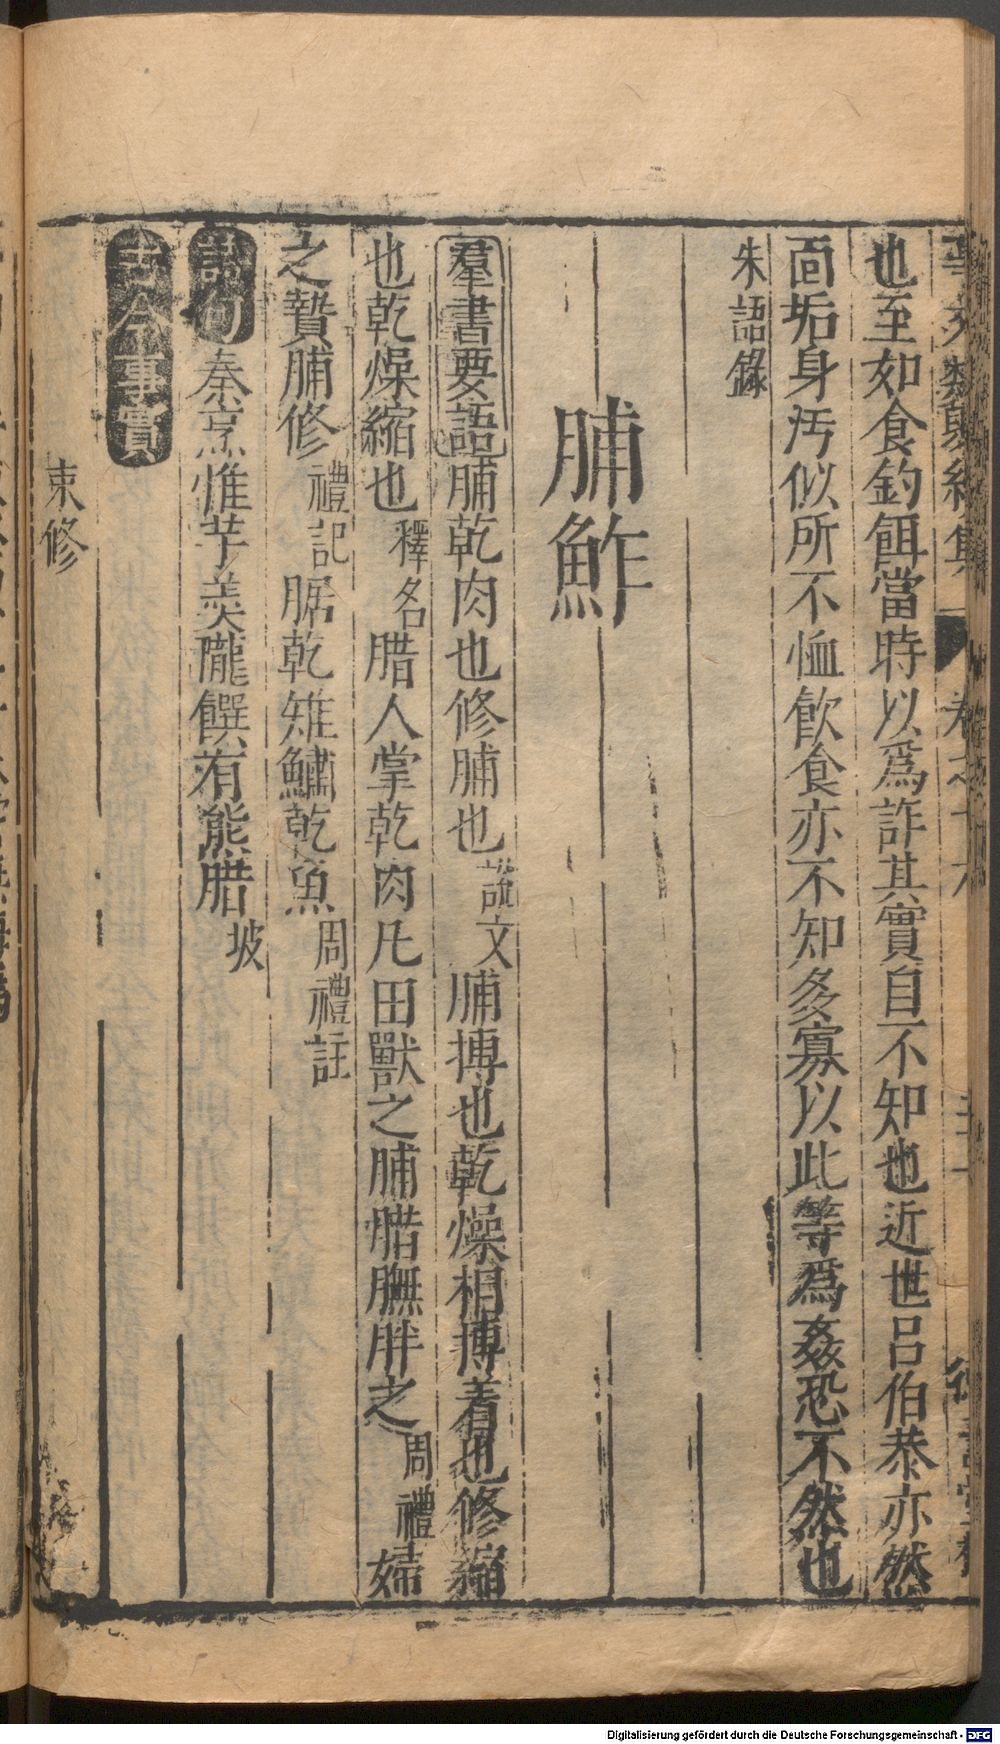 事文類聚續集 卷之十六
也至如食釣餌當時以爲詐其實自不知也近世呂伯恭亦然
面垢身汚似所不恤飲食亦不知多寡以此等爲姦恐不然也
朱語錄
脯鮓
羣書要語脯乾肉也修脯也說文脯搏也乾燥相搏着也修縮
也乾燥縮也釋名腊人掌乾肉凡田獸之脯腊膴胖之周禮婦
之贄脯修禮記腒乾雉鱐乾魚周禮註
詩句秦烹惟羊羮隴饌有熊腊坡
古今事實
束修
Digitalisierung gefördert durch die Deutsche Forschungsgemeinschaft - DFG